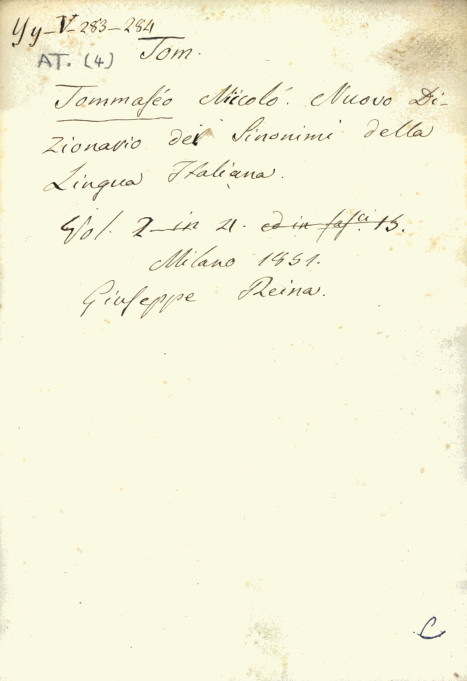 Yy-V-283-284
AT. (4) Tom.
Tommaséo Niccoló. Nuovo Di-
zionario dei Sinonimi della
Lingua Italiana.
Vol. 2 in 4. ed in fasci. 15.
Milano 1851.
Giuseppe Reina.
C